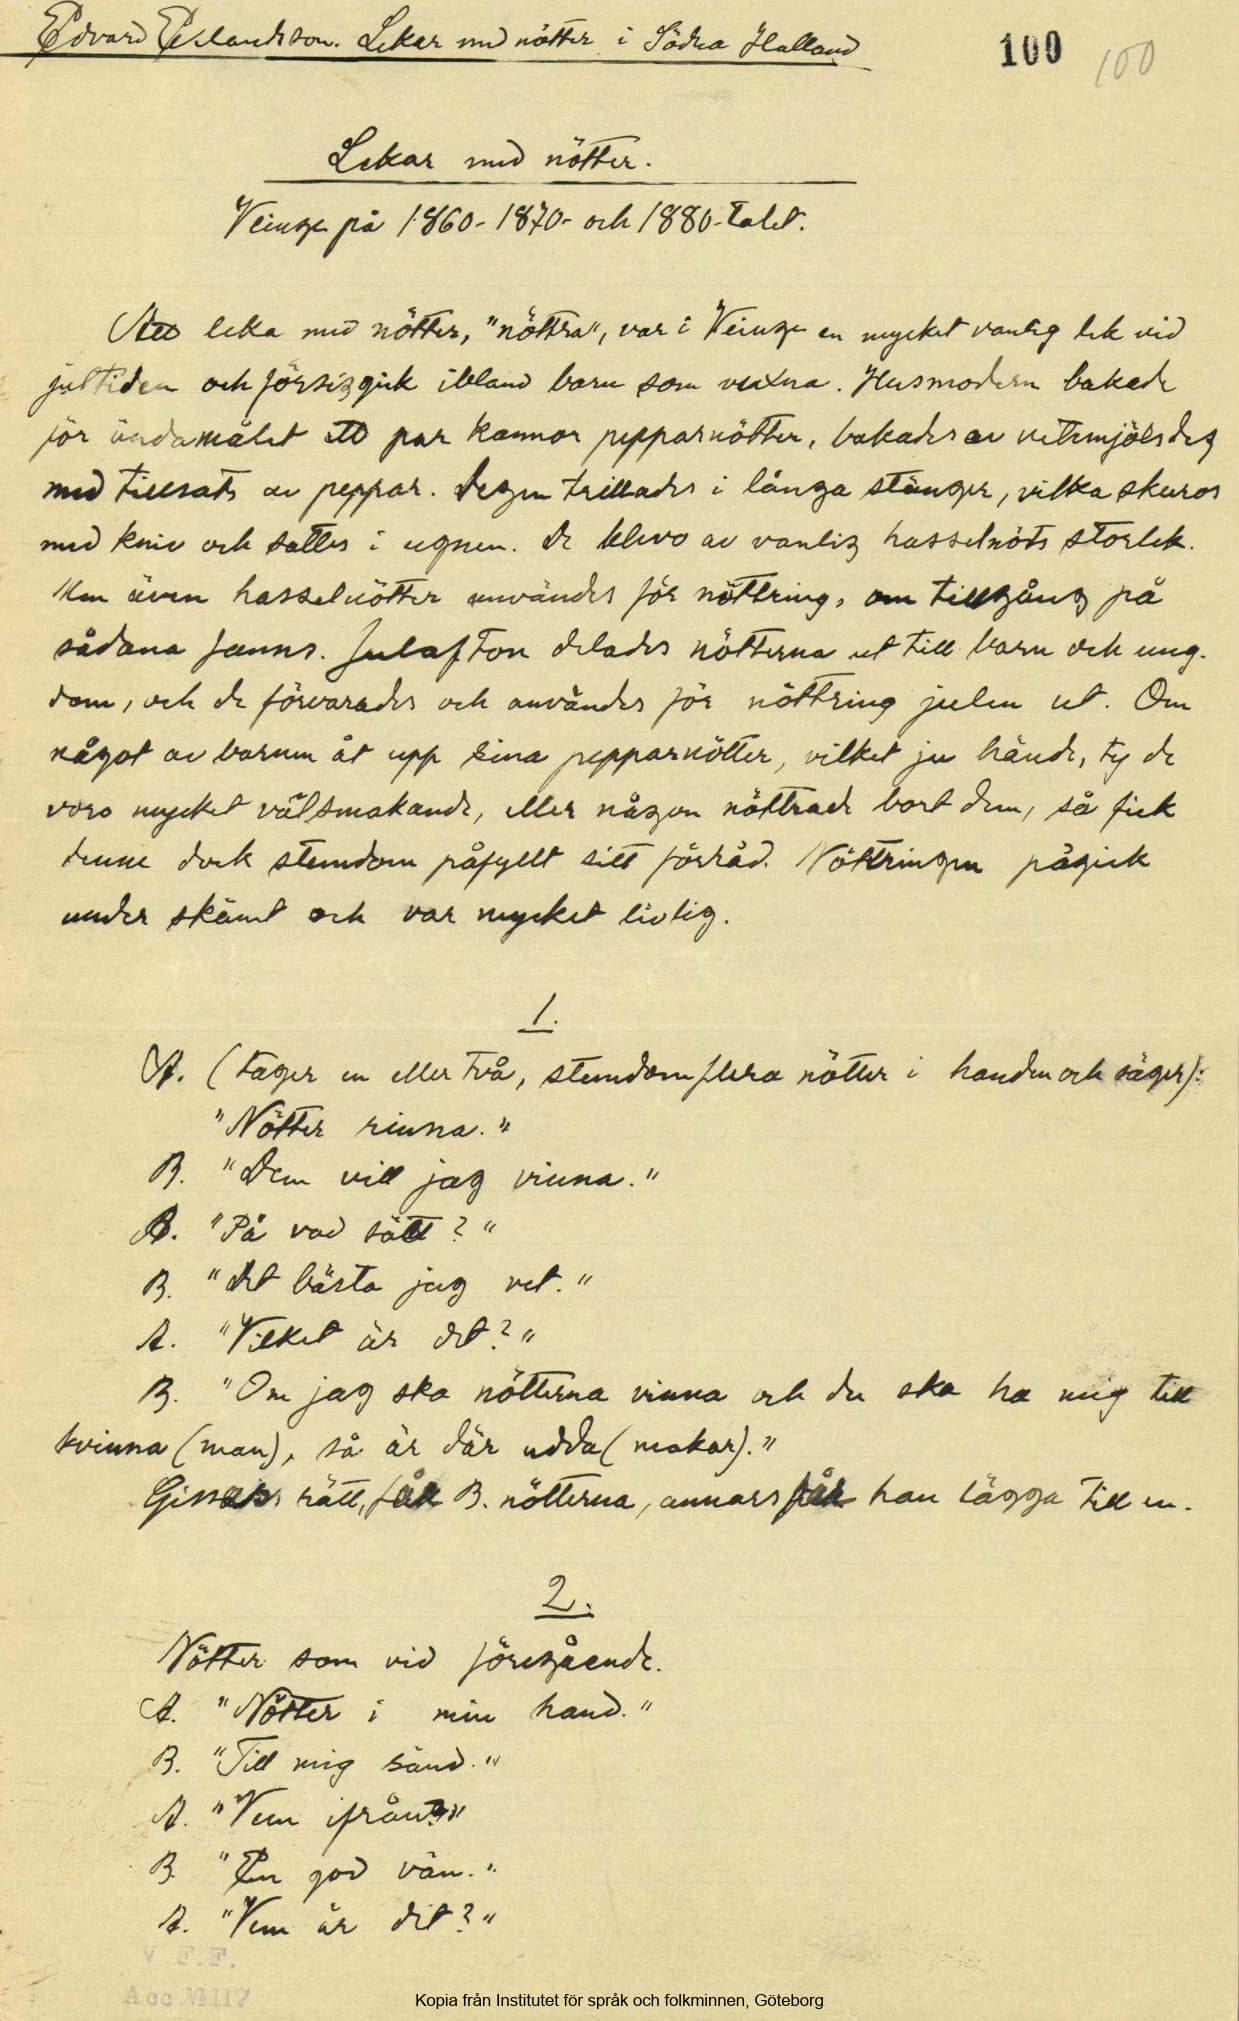 Edvard Erlandsson. Lekar med nötter i Södra Halland
100 100
Lekar med nötter.
Veinge på 1860- 1870- och 1880-talet.
Att leka med nötter, "nöttra", var i Veinge en mycket vanlig lek vid
jultiden och försiggick ibland barn som vuxna. Husmodern bakade
för ändamålet ett par kannor pepparnötter, bakades av vetemjölsdeg
med tillsats av peppar. Degen trillades i långa stänger, vilka skuros
med kniv och sattes i ugnen. De blevo av vanlig hasselnöts storlek.
Men även hasselnötter användes för nöttring, om tillgång på
sådana fanns. Julafton delades nötterna ut till barn och ung-
dom, och de förvarades och användes för nöttring julen ut. Om
något av barnen åt upp sina pepparnötter, vilket ju hände, ty de
voro mycket välsmakande, eller någon nöttrade bort dem, så fick
denne dock stundom påfyllt sitt förråd. Nöttringen pågick
under skämt och var mycket livlig.
1.
A. (tager en eller två, stundom flera nötter i handen och säger):
"Nötter rinna."
B. "Dem vill jag vinna."
A. "På vad sätt?"
B. "Det bästa jag vet."
A. "Vilket är det?"
B. "Om jag ska nötterna vinna och du ska ha mig till
kvinna (man), så är där udda (makar)."
Gissas rätt, får B. nötterna, annars får han lägga till en.
2.
Nötter som vid föregående.
A. "Nötter i min hand."
B. "Till mig sänd."
A. "Vem ifrån?"
B. "En god vän."
A. "Vem är det?"
V F.F.
Acc № 117
Kopia från Institutet för språk och folkminnen, Göteborg